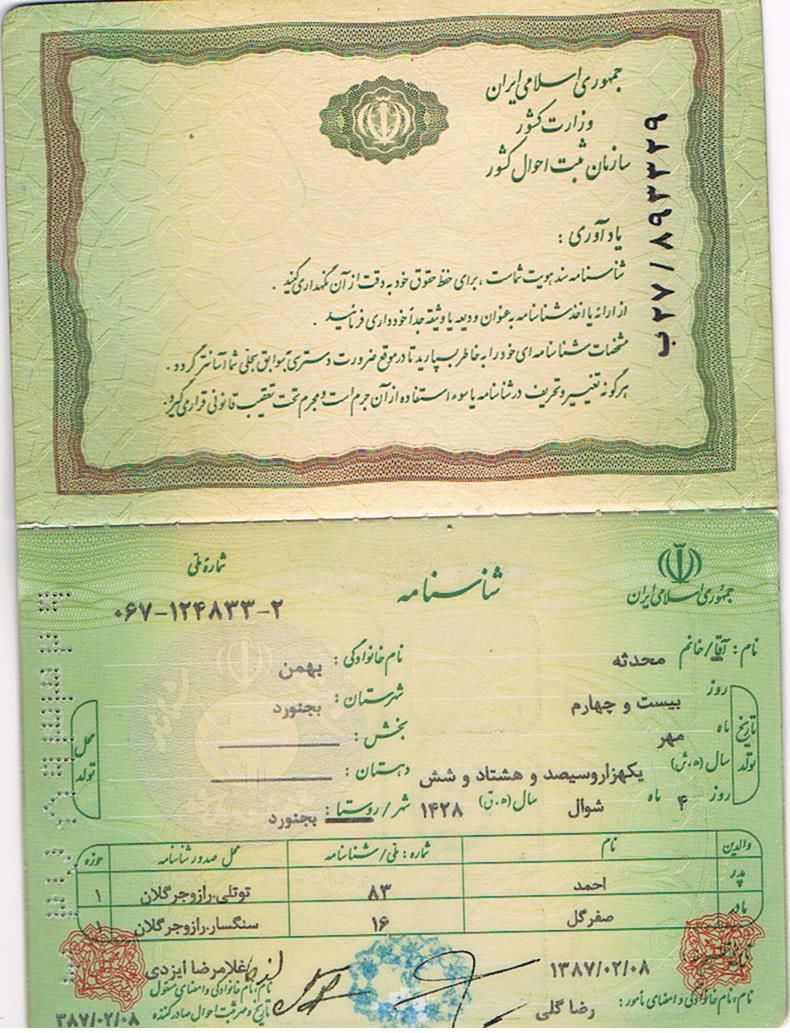 جمهوری اسلامی ایران
وزارت کشور
سازمان ثبت احوال کشور
ب۲۷/۸۹۳۳۲۹
یادآوری :
شناسنامه سند هویت شماست ، برای حفظ حقوق خود به دقت از آن نگهداری کنید .
از ارائه یا اخذ شناسنامه به عنوان ودیعه یا وثیقه جداً خودداری فرمائید .
مشخصات شناسنامه ای خود را به خاطر بسپارید تا در موقع ضرورت دسترسی به سوابق سجلی شما آسانتر گردد .
هرگونه تغییر و تحریف در شناسنامه یا سوء استفاده از آن جرم است و مجرم تحت تعقیب قانونی قرار می گیرد.
جمهوری اسلامی ایران
شناسنامه
شمارهٔ ملی
۰۶۷-۱۲۴۸۳۳-۲
نام : آقا/خانم محدثه نام خانوادگی : بهمن
تاریخ تولد
روز بیست و چهارم شهرستان : بجنورد
ماه مهر بخش :
سال (ه.ش) یکهزاروسیصد و هشتاد و شش دهستان :
روز ۴ ماه شوال سال (ه.ق) ۱۴۲۸ شهر/روستا : بجنورد
محل تولد
والدین نام شماره : ملی/شناسنامه محل صدور شناسنامه حوزه
پدر احمد ۸۳ توتلی.رازوجرگلان ۱
مادر صفرگل ۱۶ سنگسار.رازوجرگلان ۱
۱۳۸۷/۰۲/۰۸ غلامرضا ایزدی
نام، نام خانوادگی و امضای مأمور : رضا گلی نام، نام خانوادگی و امضای مسئول
تاریخ و مهر ثبت احوال صادرکننده ۱۳۸۷/۰۲/۰۸